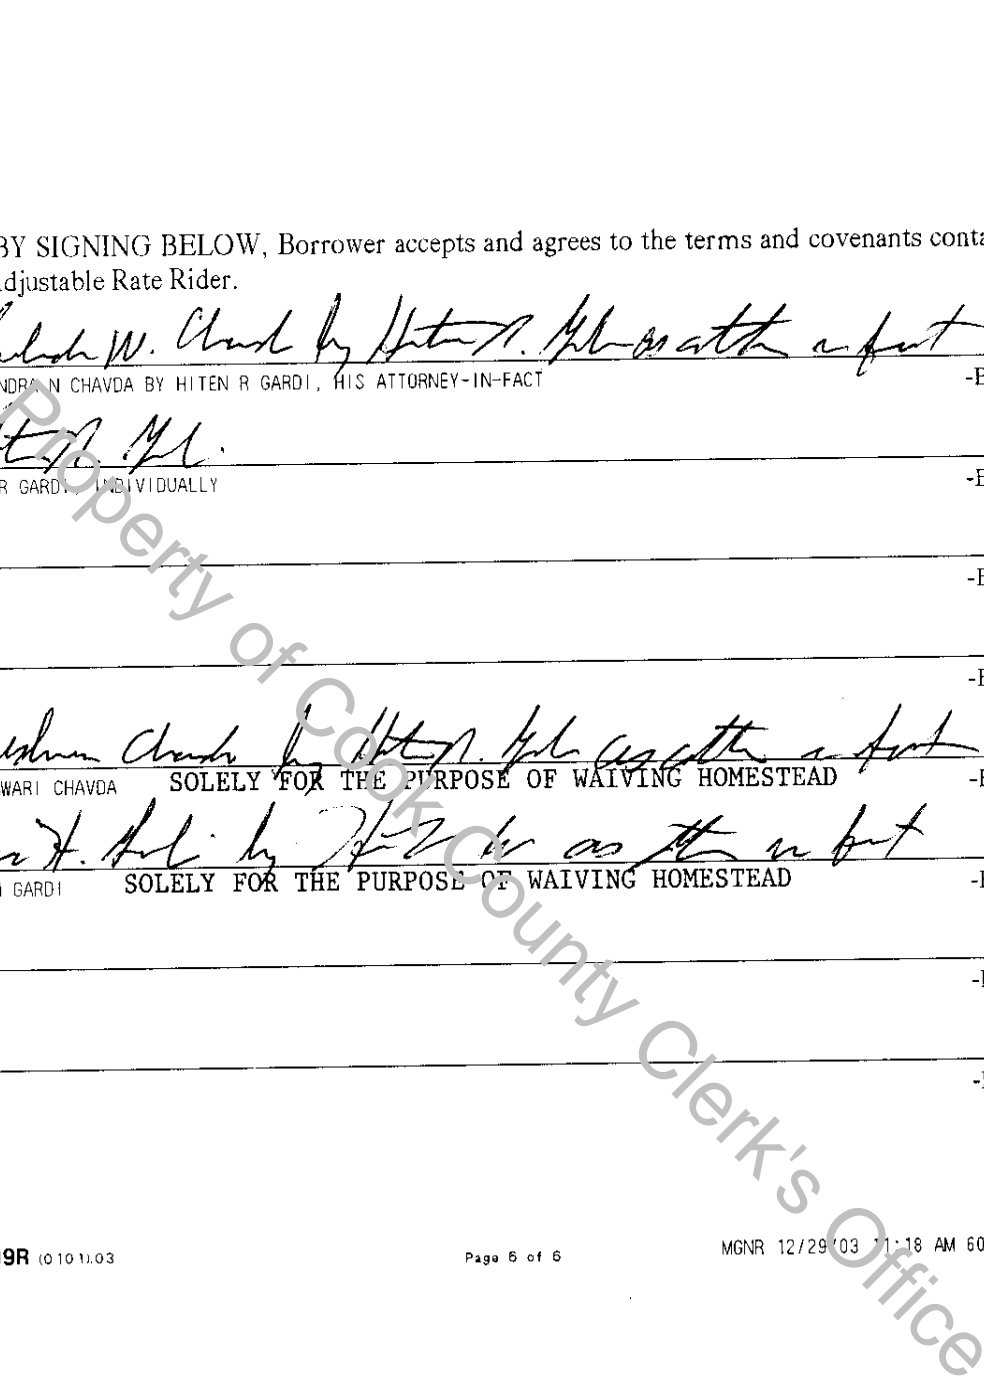 BY SIGNING BELOW, Borrower accepts and agrees to the terms and covenants conta
djustable Rate Rider.
W. Chavda by Hiten R. Gardi as attorney in fact
NDRA N CHAVDA BY HITEN R GARDI, HIS ATTORNEY-IN-FACT -B
R GARDI, INDIVIDUALLY -B
-B
-B
Chavda by Hiten R. Gardi as attorney in fact
WARI CHAVDA SOLELY FOR THE PURPOSE OF WAIVING HOMESTEAD -B
H. Gardi by as attorney in fact
GARDI SOLELY FOR THE PURPOSE OF WAIVING HOMESTEAD -B
Property of Cook County Clerk's Office
9R (0101).03 Page 6 of 6 MGNR 12/29/03 11:18 AM 60